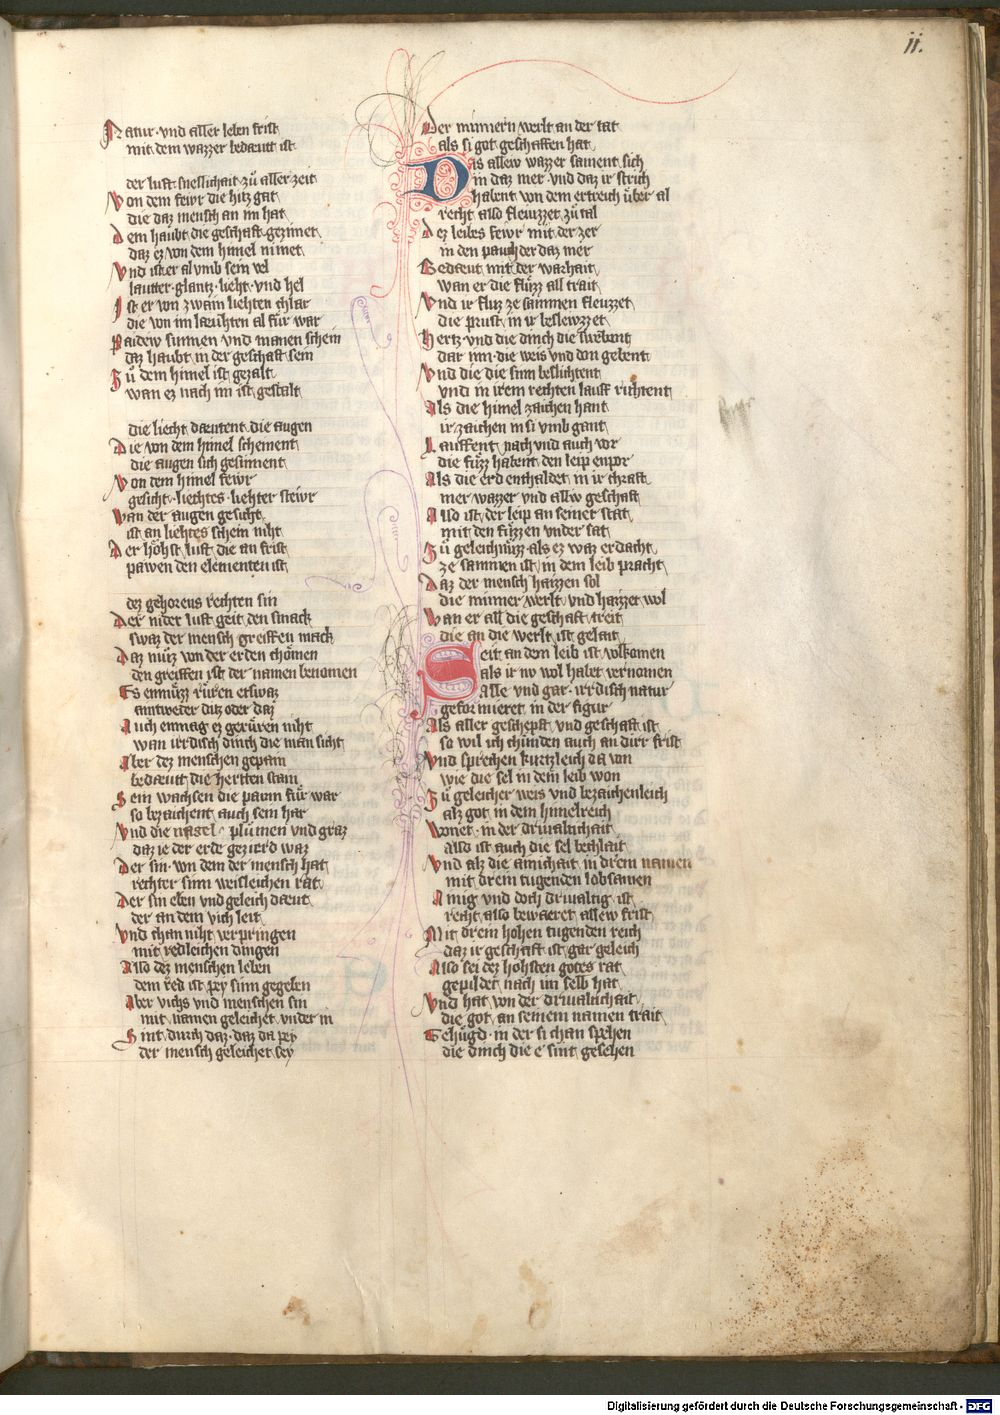 ii.
Natur · vnd aller leben frist
mit dem wazzer bedæutt ist
der luft snellichait zů aller zeit
Von dem fewr die hitz gat
die daz mensch an im hat
Dem haubt die geschaft gezimet
daz ez von dem himel nimet
Vnd ist er al vmb sein vel
lautter · glantz · lieht · vnd hel
Ist er von zwain liehten chlar
die von im læuhten al für war
Paidew sunnen vnd manen schein
daz haubt in der geschaft sein
Zů dem himel ist gezalt
wan ez nach im ist gestalt
die liecht dæutent die augen
Die von dem himel scheinent
die augen sich gesiment
Von dem himel fewr
gesicht · liechtes · liehter stewr
Wan der augen gesicht
ist an liehtes schein niht
Der höhst luft die an frist
pawen den elementen ist
dez gehorens rechten sin
Der nider luft geit den smack
swaz der mensch greiffen mack
Daz můz von der erden chömen
den greiffen ist der namen benomen
Es enmůzz rüren etswaz
aintweder ditz oder daz
Auch enmag ez gerüren niht
wan irrdisch dinch die man siht
Aber dez menschen gepain
bedæutt die hertten stain
Sein wachsen die paum für war
so bezaichent auch sein har
Vnd die nagel · plůmen vnd graz
daz ie der erde gezierd waz
Der sin von dem der mensch hat
rechter sinn weisleichen rat
Der sin eben vnd geleich dæut
der an dem vich leit
Vnd chan niht verpringen
mit redleichen dingen
Also dez menschen leben
dem red ist pey sinn gegeben
Aber vichs vnd menschen sin
mit namen geleichet vnder in
Sint durch daz · daz da pey
der mensch geleichet sey
Der minnern werlt an der tat
als si got geschaffen hat
Das allew wazzer sament sich
in daz mer · vnd daz ir strich
habent von dem ertreich über al
recht also fleuzzet zů tal
Dez leibes fewr mit der zer
in den pauch der daz mer
Bedæut mit der warhait
wan er die flüzz all trait
Vnd ir fluz ze sammen fleuzzet
die prust in ir beslewzzet
Hertz vnd die dinch die swebent
dar inn · die weis vnd don gebent
Vnd die die sinn beslichtent
vnd in irem rechten lauff richtent
Als die himel zaichen hant
ir zaichen in si vmb gant
Lauffent nach vnd auch vor
die füzz habent den leip enpor
Als die erd enthaldet in ir chraft
mer wazzer vnd allew geschaft
Also ist der leip an seiner stat
mit den füzzen vnder sat
Zů geleichnüzz als ez waz erdacht
ze sammen ist in dem leib pracht
Daz der mensch haizzen sol
die minner werlt vnd haizzet wol
Wan er all die geschaft treit
die an die werlt ist geleit
Seit an dem leib ist volkomen
als ir nv wol habet vernomen
Alle vnd gar · irrdisch natur
geformieret in der figur
Als aller geschepft vnd geschaft ist
so wil ich chünden auch an dirr frist
Vnd sprechen kurtzleich da von
wie die sel in dem leib won
Zů geleicher weis vnd bezaichenleich
alz got in dem himelreich
Wonet in der drivaltichait
also ist auch die sel bechlait
Vnd alz die ainichait in drein namen
mit drein tugenden lobsamen
Ainig vnd doch drivaltig ist
recht also bewaeret allew frist
Mit drein hohen tugenden reich
daz ir geschaft ist gar geleich
Also sei dez höhsten gotes rat
gepildet nach im selb hat
Vnd hat von der drivaltichait
die got an seinem namen trait
Gehügd · in der si chan spehen
die dinch die e sint gesehen
Digitalisierung gefördert durch die Deutsche Forschungsgemeinschaft - DFG